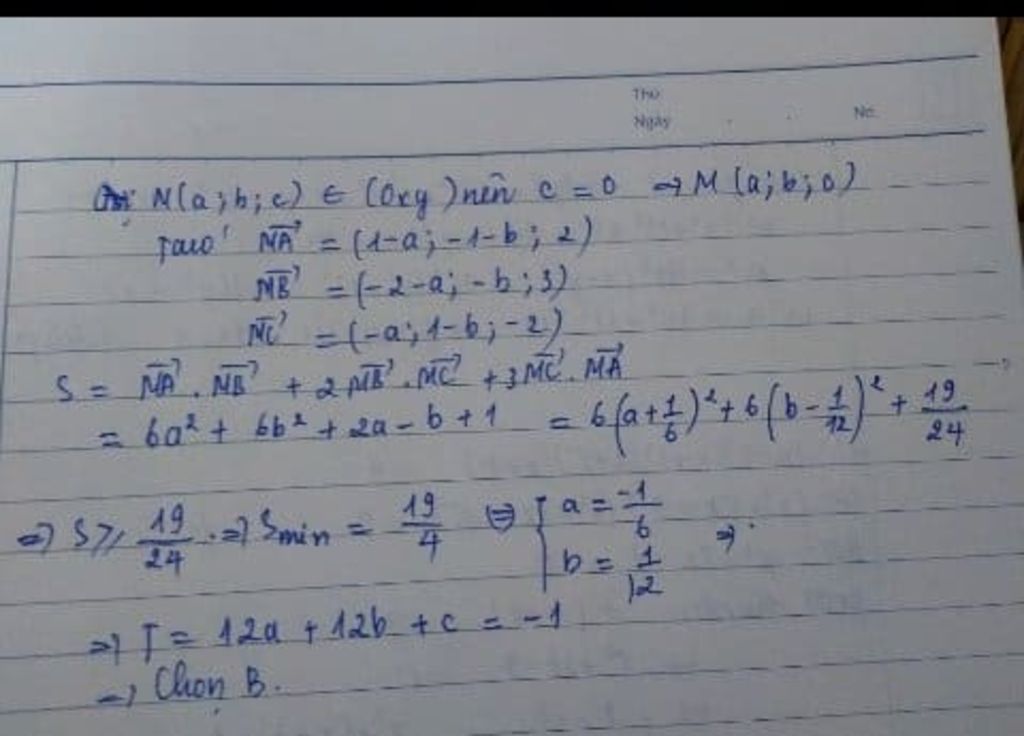 Thứ
Ngày No.
Gọi M(a;b;c) ∈ (Oxy) nên c = 0 → M(a;b;0)
Ta có MA⃗ = (1-a; -1-b; 2)
MB⃗ = (-2-a; -b; 3)
MC⃗ = (-a; 1-b; -2)
S = MA⃗ . MB⃗ + 2MB⃗ . MC⃗ + 3MC⃗ . MA⃗
= 6a² + 6b² + 2a - b + 1 = 6(a + 1/6)² + 6(b - 1/12)² + 19/24
⇒ S ≥ 19/24 . ⇒ Smin = 19/4 ⇔ { a = -1/6 ⇒
b = 1/12
⇒ T = 12a + 12b + c = -1
→ Chọn B.